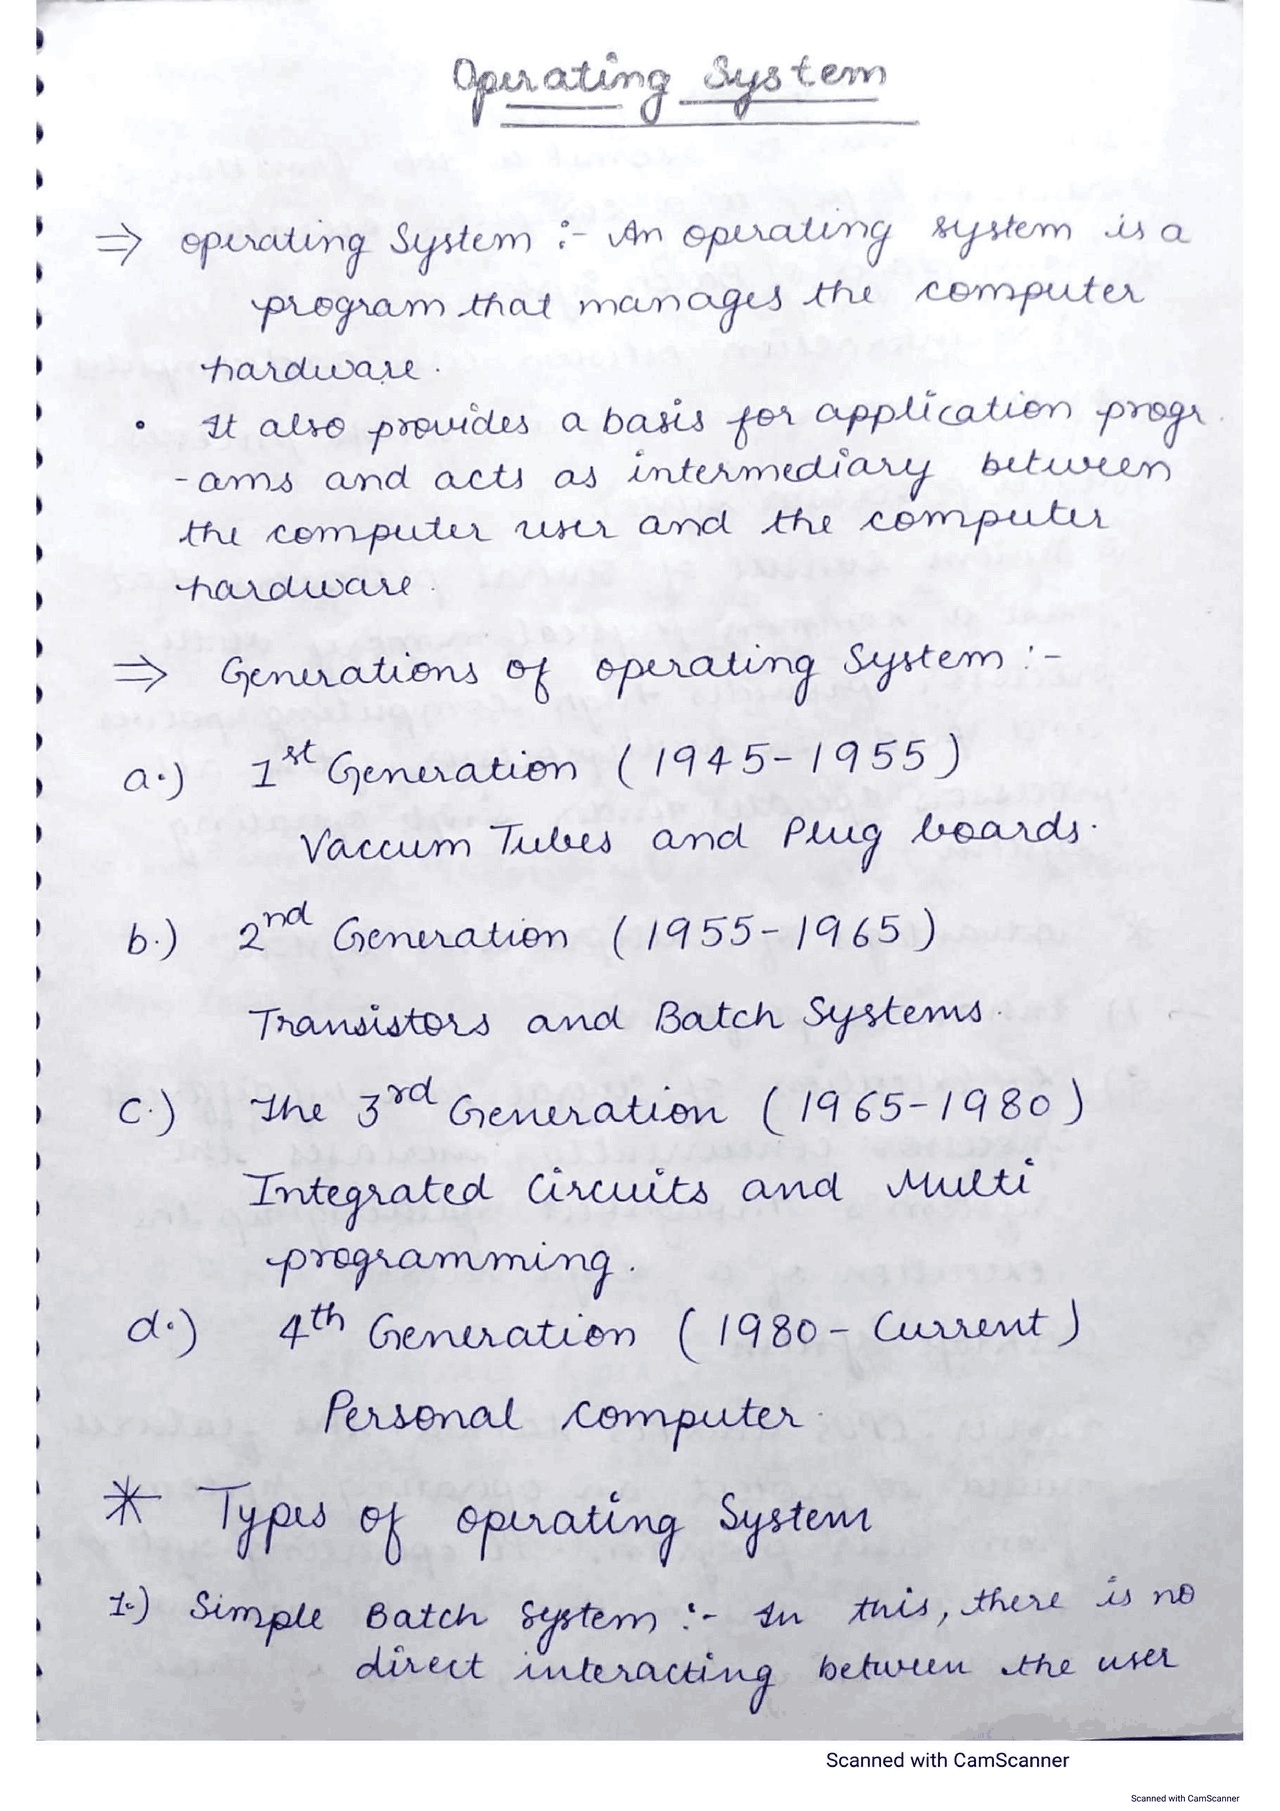 Operating System
⇒ operating System :- An operating system is a
program that manages the computer
hardware.
• It also provides a basis for application progr
-ams and acts as intermediary between
the computer user and the computer
hardware.
⇒ Generations of operating System :-
a.) 1st Generation (1945-1955)
Vaccum Tubes and Plug boards.
b.) 2nd Generation (1955-1965)
Transistors and Batch Systems.
c.) The 3rd Generation (1965-1980)
Integrated Circuits and Multi
programming.
d.) 4th Generation (1980- Current)
Personal computer.
* Types of operating System
1.) Simple Batch System :- In this, there is no
direct interacting between the user
Scanned with CamScanner
Scanned with CamScanner